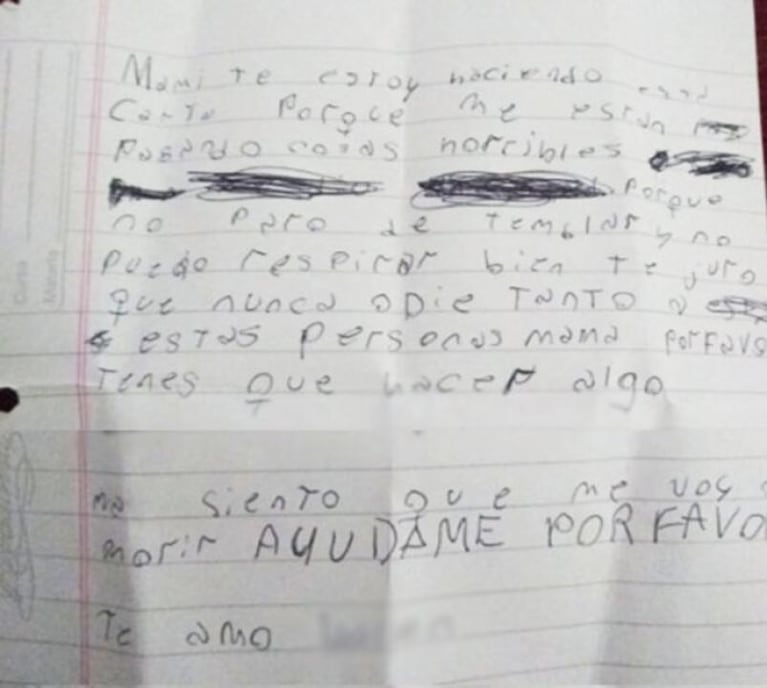 Mami te estoy haciendo esta
Carta Porque me están
Pasando cosas horribles
Porque
no Paro de temblar y no
Puedo respirar bien te juro
que nunca odie TanTO a
estas Personas mama porfavo
Tenes que hacer algo
me siento que me voy a
morir AYUDAME POR FAVO
Te amo